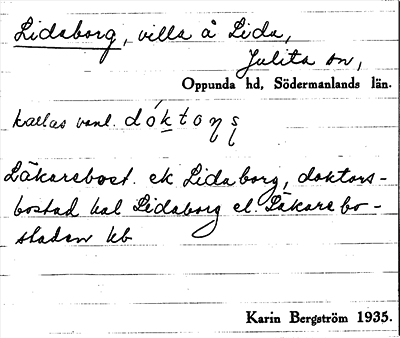 Lidaborg, villa å Lida,
Julita sn,
Oppunda hd, Södermanlands län.
kallas vanl. dók̠toɳʂ
Läkarebost. ek Lidaborg, doktors-
bostad hal Lidaborg el. Läkarebo-
staden kb
Karin Bergström 1935.